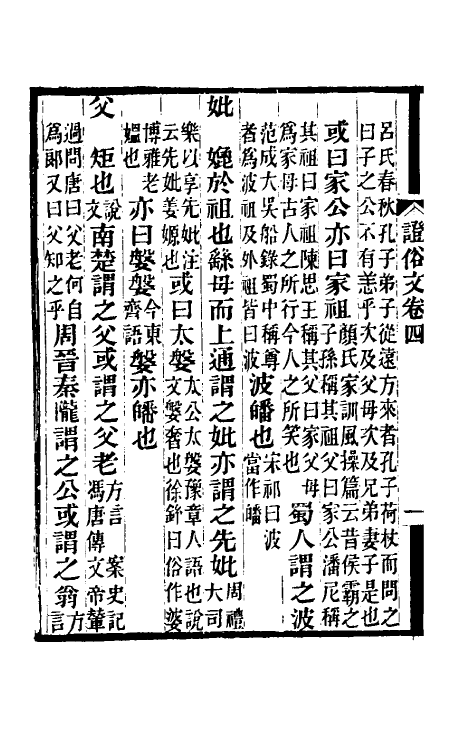 證俗文卷四
一
呂氏春秋孔子弟子從遠方來者孔子荷杖而問之
曰子之公不有恙乎次及父母次及兄弟妻子是也
或曰家公亦曰家祖
顏氏家訓風操篇云昔侯霸之
子孫稱其祖父曰家公潘尼稱
其祖曰家祖陳思王稱其父曰家父母
為家母古人之所行今人之所笑也
蜀人謂之波
范成大吳船錄蜀中稱尊
者為波祖及外祖皆曰波
波皤也
宋祁曰波
當作皤
妣
媲於祖也繇母而上通謂之妣亦謂之先妣
周禮
大司
樂以享先妣注
云先妣姜嫄也
或曰太媻
太公太媻豫章人語也說
文媻奢也徐鉉曰俗作婆
博雅老
媼也
亦曰媻媻
今東
齊語
媻亦皤也
父
矩也
說
文
南楚謂之父或謂之父老
方言 案史記
馮唐傳文帝輦
過問唐曰父老何自
為郎又曰父知之乎
周晉秦隴謂之公或謂之翁
方
言